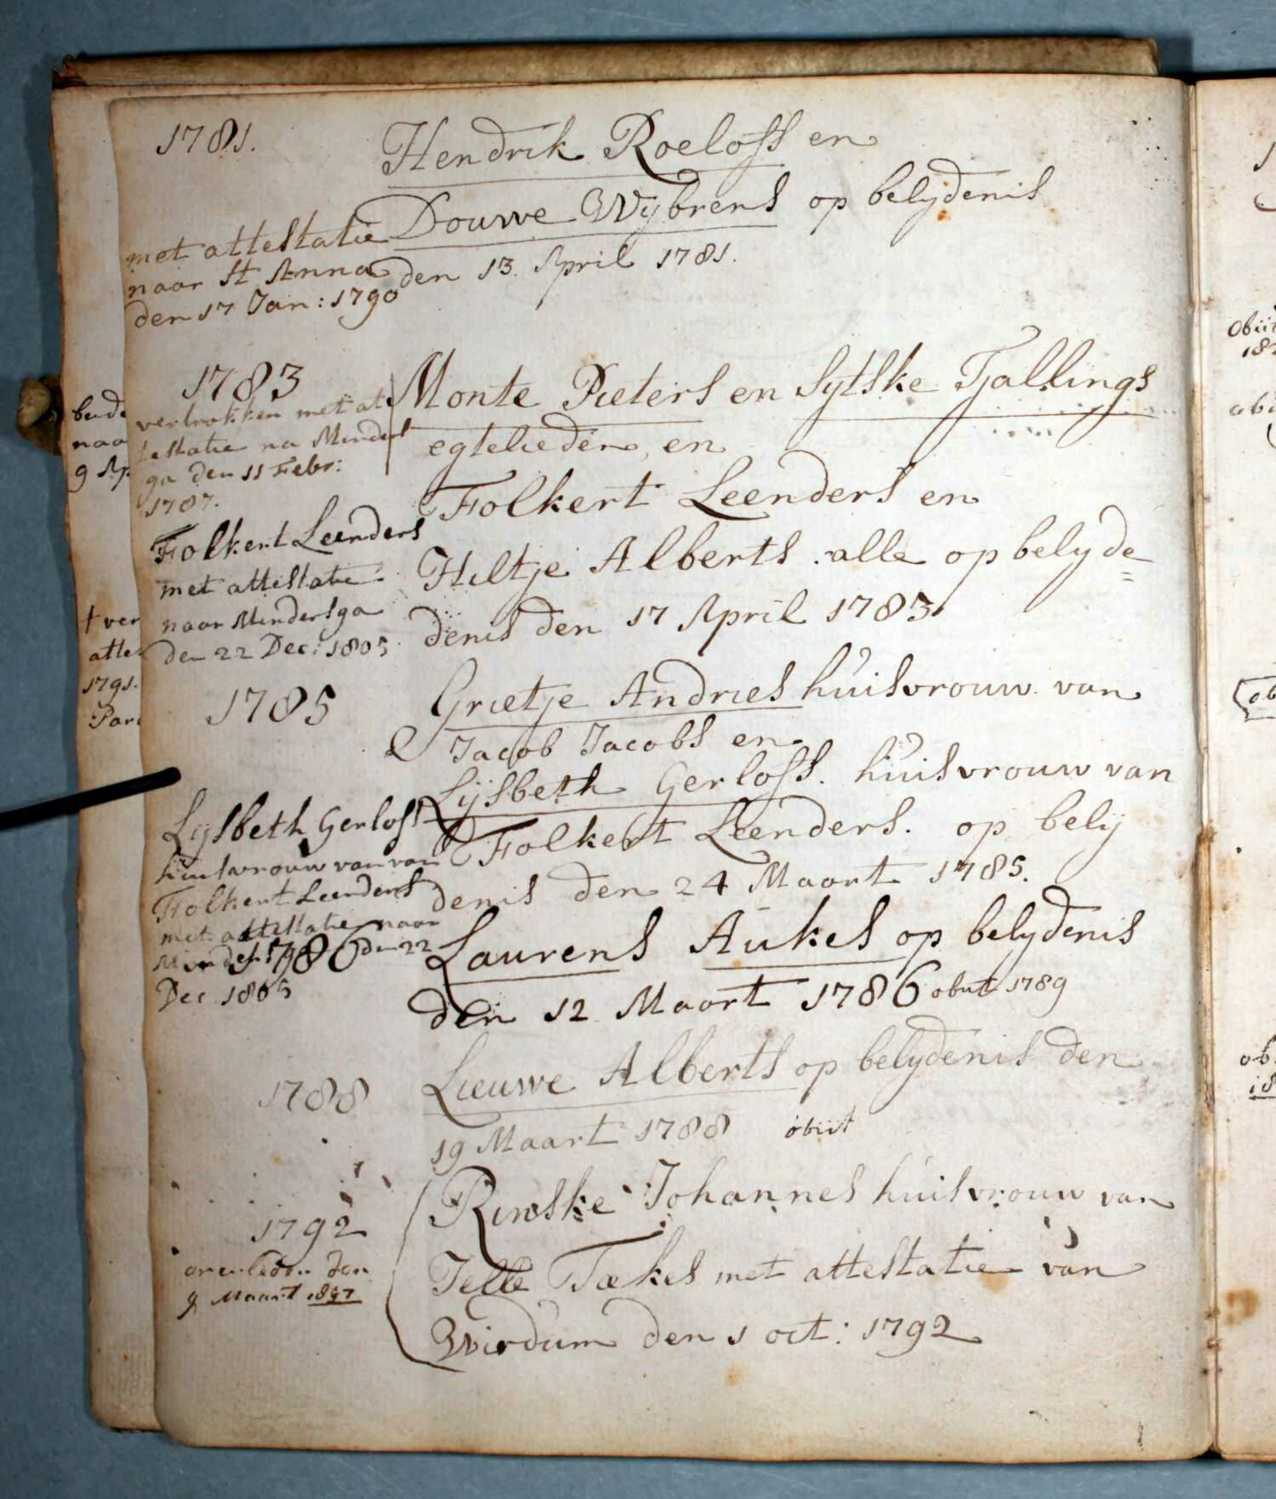 1781.
Hendrik Roeloffs en
Douwe Wybrens op belydenis
den 13. April 1781.
met attestatie
naar St Anna
den 17 Jan: 1790
1783
Monte Pieters en Sytske Tjallings
egtelieden, en
Folkert Leenders en
Hiltje Alberts. alle op belyde=
denis den 17 April 1783.
vertrokken met at
testatie na Minders
ga den 11 Febr:
1787.
Folkert Leenders
met attestatie
naar Mindersga
den 22 Dec: 1805.
1785
Grietje Andries huisvrouw van
Jacob Jacobs en
Lijsbeth Gerloffs. huisvrouw van
Folkert Leenders. op bely
denis den 24 Maart 1785.
Lysbeth Gerloffs
huisvrouw van van
Folkert Leenders
met attestatie naar
den 22
Dec 1805
1786
Laurens Aukes op belydenis
den 12 Maart 1786 obiit 1789
1788
Lieuwe Alberts op belydenis den
19 Maart 1788 obiit
1792
Rinske Johannes huisvrouw van
Jelle Tækes met attestatie van
Wirdum den 1 oct: 1792
overleden den
9 Maart
beide
naa
9 Ap
ver
atte
1791.
obiit